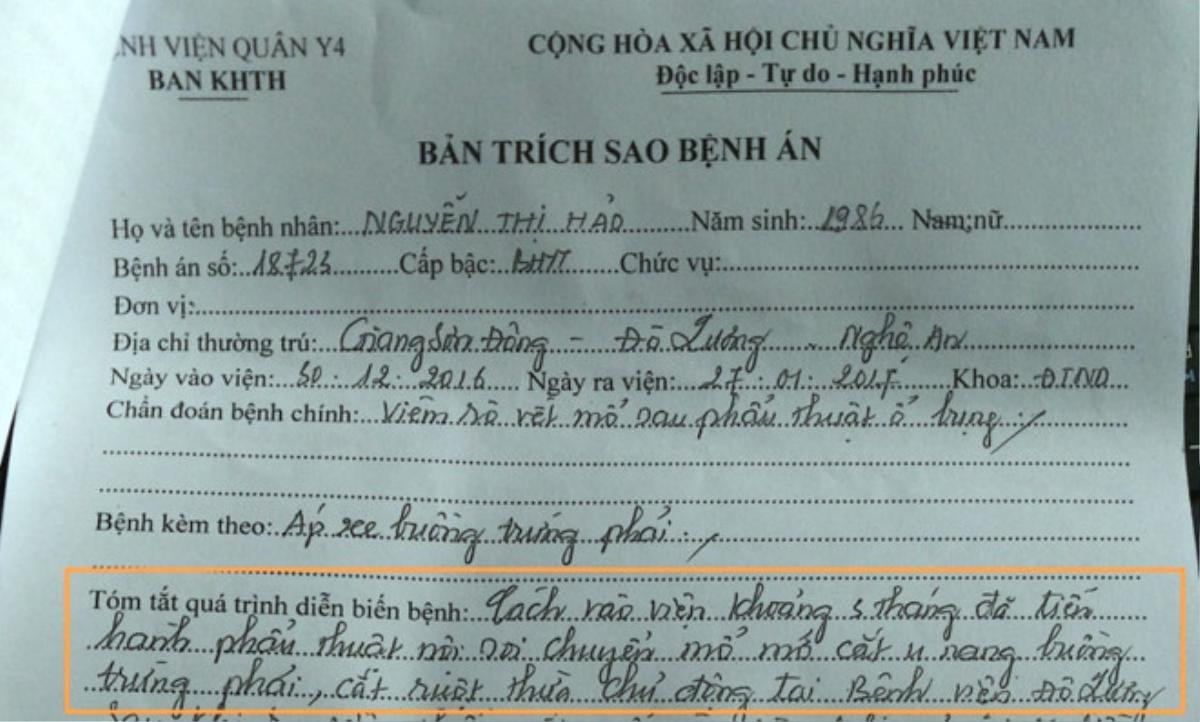 NH VIỆN QUÂN Y4
BAN KHTH
CỘNG HÒA XÃ HỘI CHỦ NGHĨA VIỆT NAM
Độc lập - Tự do - Hạnh phúc
BẢN TRÍCH SAO BỆNH ÁN
Họ và tên bệnh nhân: NGUYỄN THỊ HẢO Năm sinh: 1986 Nam; nữ
Bệnh án số: 18723 Cấp bậc: BHTT Chức vụ:
Đơn vị:
Địa chỉ thường trú: Giang Sơn Đông - Đô Lương - Nghệ An
Ngày vào viện: 30.12.2016 Ngày ra viện: 27.01.2017 Khoa:
Chẩn đoán bệnh chính: Viêm dò vết mổ sau phẩu thuật ổ bụng ./
Bệnh kèm theo: Áp xee buồng trứng phải ./
Tóm tắt quá trình diễn biến bệnh: Cách vào viện khoảng 5 tháng đã tiến
hành phẩu thuật nội soi chuyển mổ mở cắt u nang buồng
trứng phải, cắt ruột thừa chủ động tại Bệnh viện Đô Lương